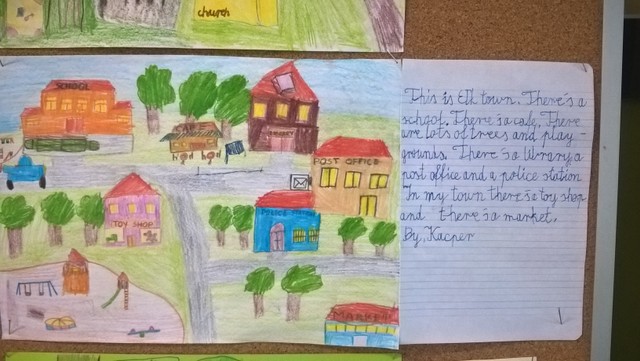 church
SCHOOL
POST OFFICE
TOY SHOP
POLICE
MARKET
This is Ełk town. There's a
school. There is a cafe. There
are lots of trees and play-
grounds. There's a library, a
post office and a police station
In my town there is a toy shop
and there is a market.
By, Kacper